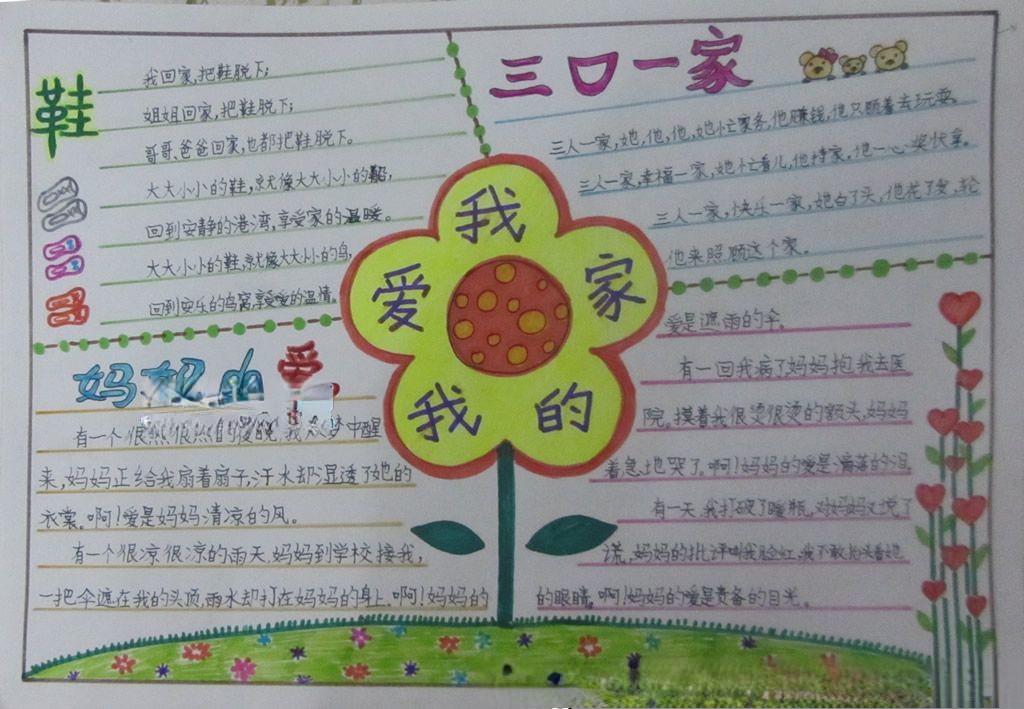 鞋
我回家，把鞋脱下；
姐姐回家，把鞋脱下；
哥哥、爸爸回家，也都把鞋脱下。
大大小小的鞋，就像大大小小的船，
回到安静的港湾，享受家的温暖。
大大小小的鞋，就像大大小小的鸟，
回到安乐的鸟窝，享受爱的温情。
三口一家
三人一家，她，他，他，她忙家务，他赚钱，他只顾着去玩耍。
三人一家，幸福一家，她忙着儿，他持家，他一心
三人一家，快乐一家，她白了头，他花了发，轮
他来照顾这个家。
我
爱
家
我
的
妈妈
爱
有一个很热很热的夜晚，我从梦中醒
来，妈妈正给我扇着扇子，汗水却湿透了她的
衣裳。啊！爱是妈妈清凉的风。
有一个很凉很凉的雨天，妈妈到学校接我，
一把伞遮在我的头顶，雨水却打在妈妈的身上。啊！妈妈的
爱是遮雨的伞。
有一回我病了，妈妈抱我去医
院。摸着我很烫很烫的额头，妈妈
着急地哭了。啊！妈妈的爱是滴落的泪。
有一天，我打破了暖瓶，对妈妈又说了
谎，妈妈的批评叫我脸红，我不敢抬头看她
的眼睛。啊！妈妈的爱是责备的目光。